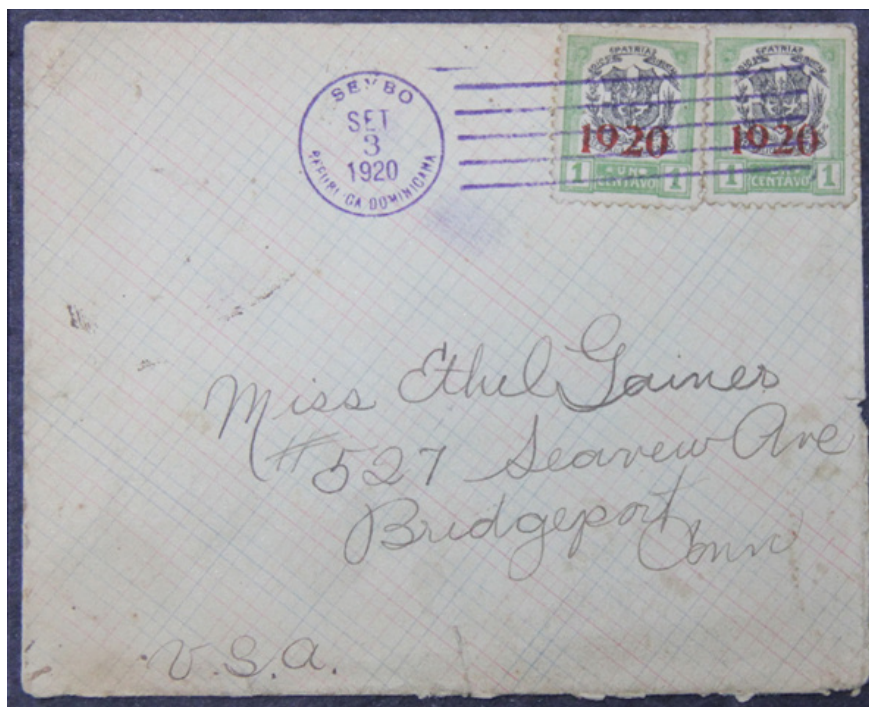 SEYBO
SET
3
1920
REPUBLICA DOMINICANA
PATRIA
1920
1 UN CENTAVO 1
PATRIA
1920
1 UN CENTAVO 1
Miss Ethel Gaines
#527 Seaview Ave
Bridgeport
Conn
U.S.A.